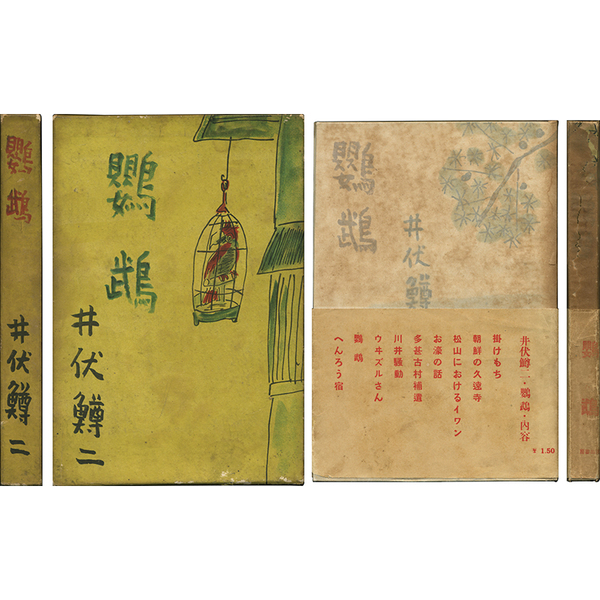 鸚鵡
井伏鱒二
鸚鵡
井伏鱒二
鸚鵡
井伏鱒
井伏鱒二・鸚鵡・内容
掛けもち
朝鮮の久遠寺
松山におけるイワン
お濠の話
多甚古村補遺
川井騒動
ウヰズルさん
鸚鵡
へんろう宿
¥ 1.50
鸚鵡